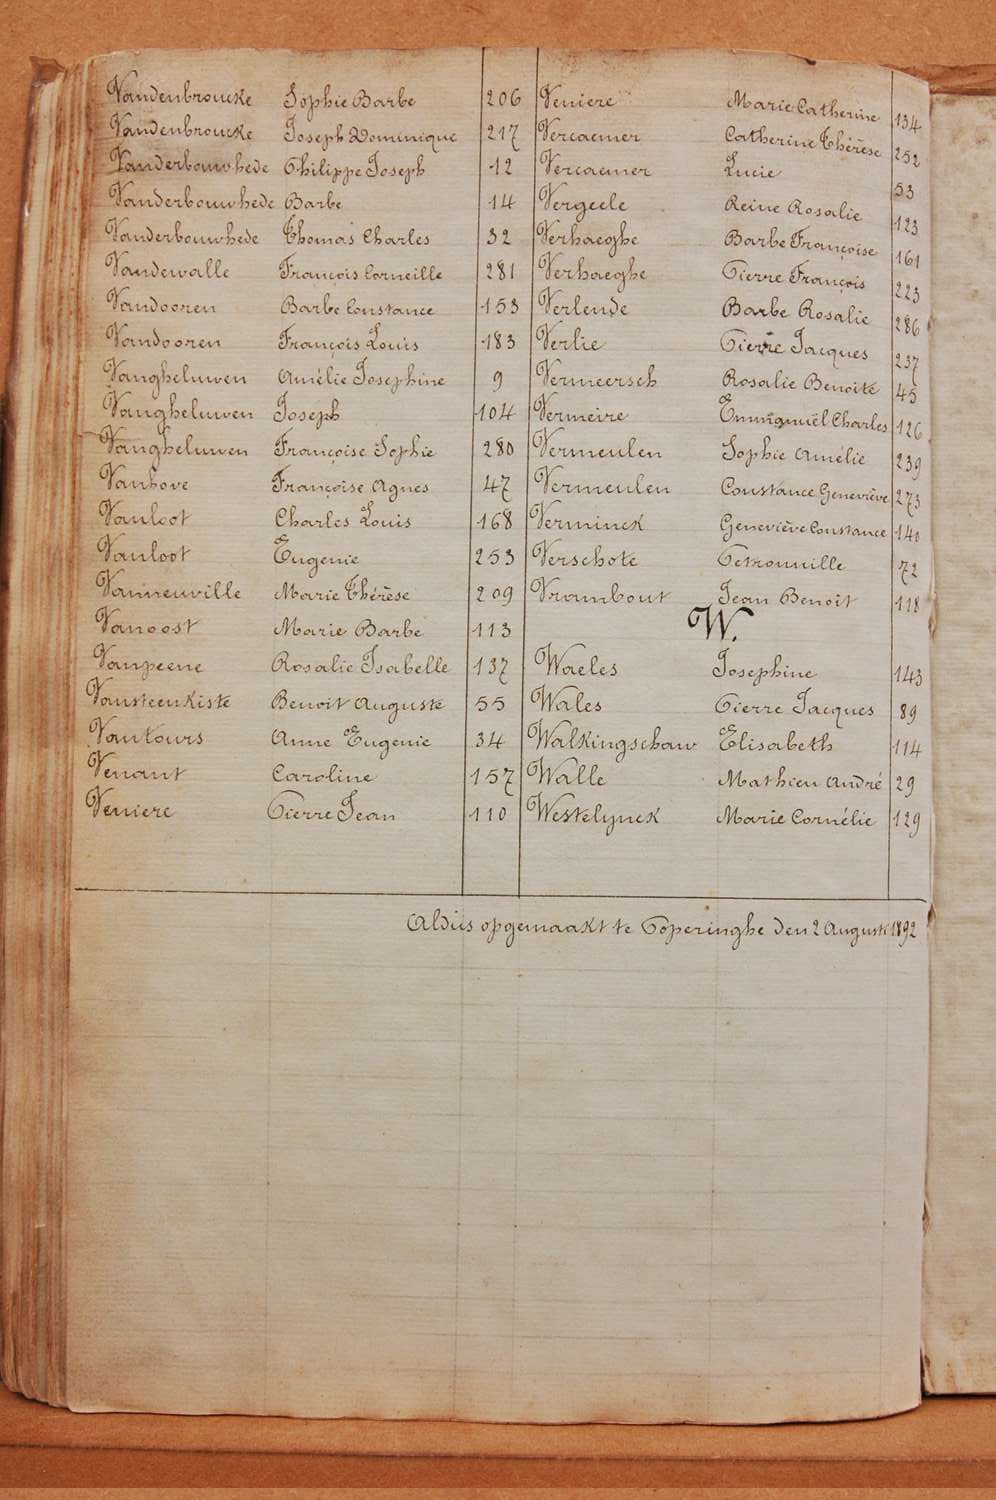 Vandenbroucke Sophie Barbe 206
Vandenbroucke Joseph Dominique 217
Vanderbouwhede Philippe Joseph 12
Vanderbouwhede Barbe 14
Vanderbouwhede Thomas Charles 32
Vandewalle François Corneille 281
Vandooren Barbe Constance 153
Vandooren François Louis 183
Vangheluwen Amélie Josephine 9
Vangheluwen Joseph 104
Vangheluwen Françoise Sophie 280
Vanhove Françoise Agnes 47
Vanloot Charles Louis 168
Vanloot Eugenie 253
Vanneuville Marie Thérèse 209
Vanoost Marie Barbe 113
Vanpeene Rosalie Isabelle 137
Vansteenkiste Benoit Auguste 55
Vantours Anne Eugenie 34
Venant Caroline 157
Veniere Pierre Jean 110
Veniere Marie Catherine 134
Vercaemer Catherine Thérèse 252
Vercaemer Lucie 53
Vergeele Reine Rosalie 123
Verhaeghe Barbe Françoise 161
Verhaeghe Pierre François 223
Verlende Barbe Rosalie 286
Verlie Pierre Jacques 237
Vermeersch Rosalie Benoite 45
Vermeire Emmanuël Charles 126
Vermeulen Sophie Amélie 239
Vermeulen Constance Geneviève 273
Verminck Geneviève Constance 140
Verschote Petronuille 72
Vrambout Jean Benoît 118
W.
Waeles Josephine 143
Wales Pierre Jacques 89
Walkingschaw Elisabeth 114
Walle Mathieu André 29
Westelynck Marie Cornélie 129
Aldus opgemaakt te Poperinghe den 2 August 1892